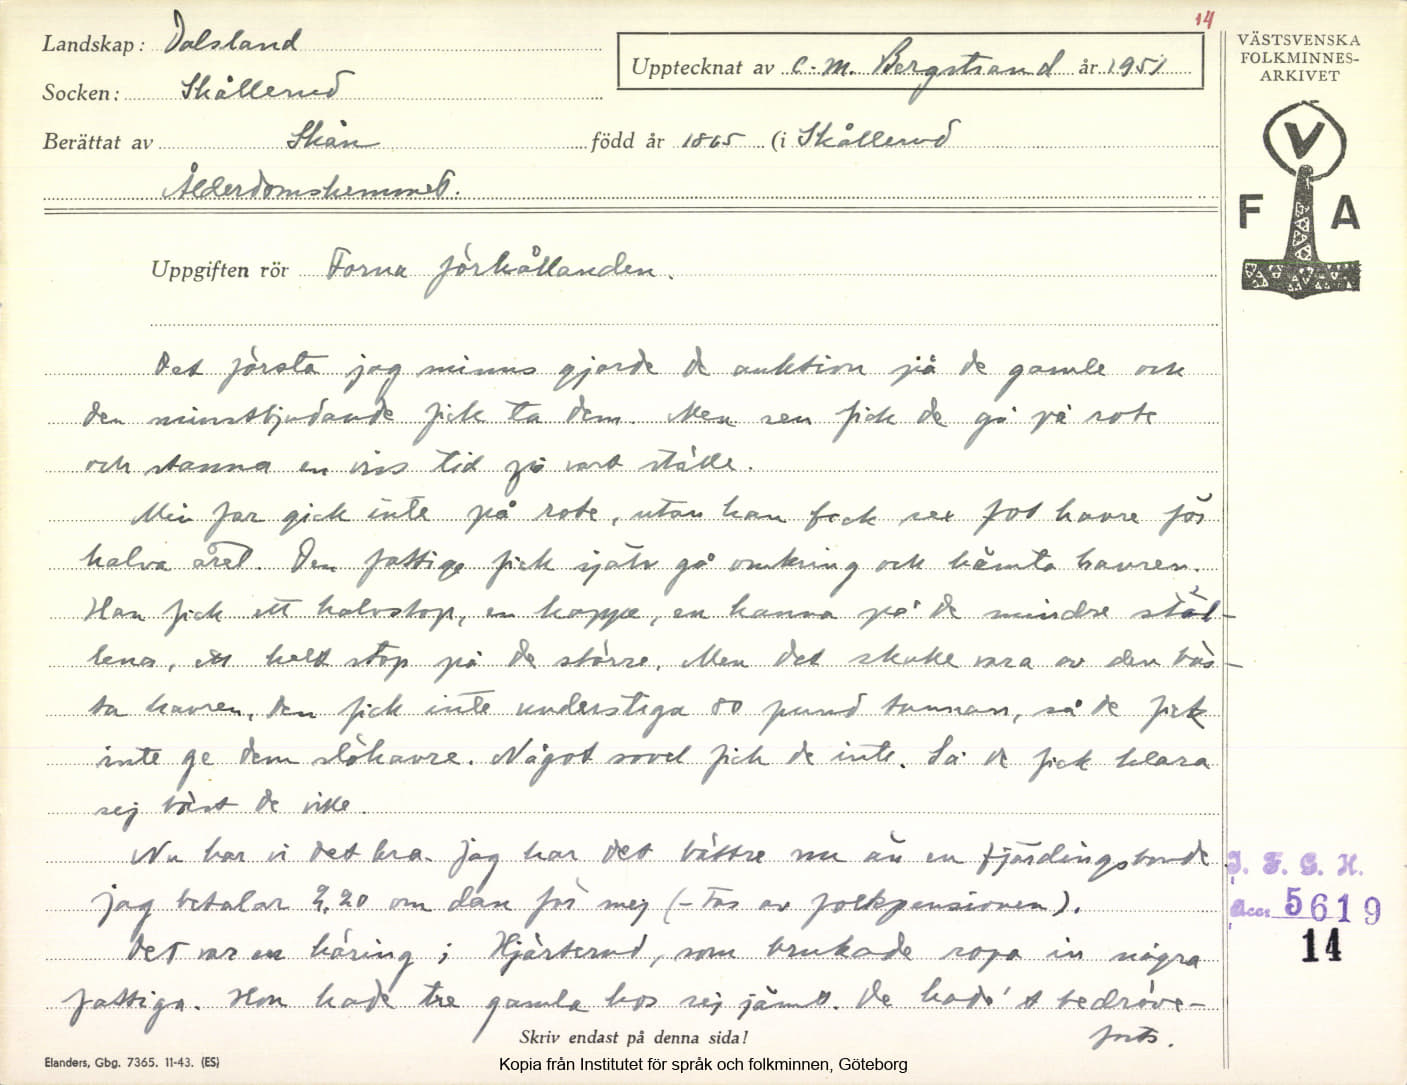 14
Landskap: Dalsland
Upptecknat av C.-M. Bergstrand år 1951
Socken: Skållerud
Berättat av Skån född år 1865 (i Skållerud
Ålderdomshemmet.
VÄSTSVENSKA
FOLKMINNES-
ARKIVET
V
F A
Uppgiften rör Forna förhållanden.
Det första jag minns gjorde de auktion på de gamle och
den minstbjudande fick ta dem. Men sen fick de gå på rote
och stanna en viss tid på vart ställe.
Min far gick inte på rote, utan han fick sex fot havre för
halva året. Den fattige fick själv gå omkring och hämta havren.
Han fick ett halvstop, en kappe, en kanna på de mindre stäl-
lena, ett helt stop på de större. Men det skulle vara av den bäs-
ta havren, den fick inte understiga 80 pund tunnan, så de fick
inte ge dem slöhavre. Något sovel fick de inte. Så de fick klara
sej bäst de ville.
Nu har vi det bra. Jag har det bättre nu än en fjärdingsbonde
jag betalar 2,20 om dan för mej (- Tas av folkpensionen).
Det var en käring i Hjärterud, som brukade ropa in några
fattiga. Hon hade tre gamla hos sej jämt. De hade't bedröve-
forts.
Skriv endast på denna sida!
I. F. G. H.
Acc. 5619
14
Elanders, Gbg. 7365. 11-43. (ES)
Kopia från Institutet för språk och folkminnen, Göteborg